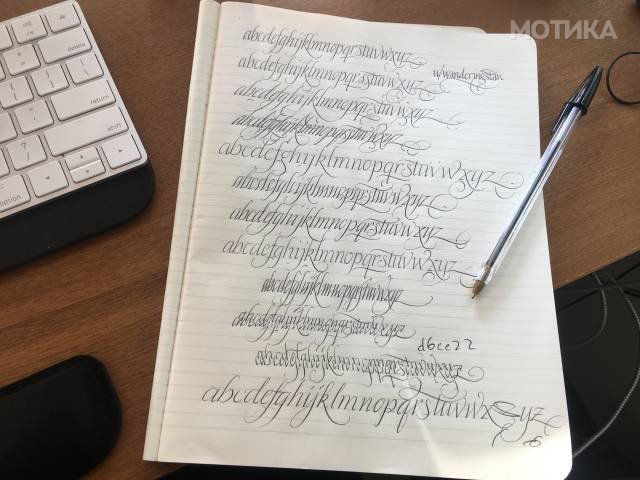 МОТИКА
abcdefghijklmnopqrstuvwxyz
u/wanderingstan
abcdefghijklmnopqrstuvwxyz
abcdefghijklmnopqrstuvwxyz
abcdefghijklmnopqrstuvwxyz
abcdefghijklmnopqrstuvwxyz
abcdefghijklmnopqrstuvwxyz
abcdefghijklmnopqrstuvwxyz
abcdefghijklmnopqrstuvwxyz
abcdefghijklmnopqrstuvwxyz
abcdefghijklmnopqrstuvwxyz
d6ce22
abcdefghijklmnopqrstuvwxyz
abcdefghijklmnopqrstuvwxyz
delete
return
shift